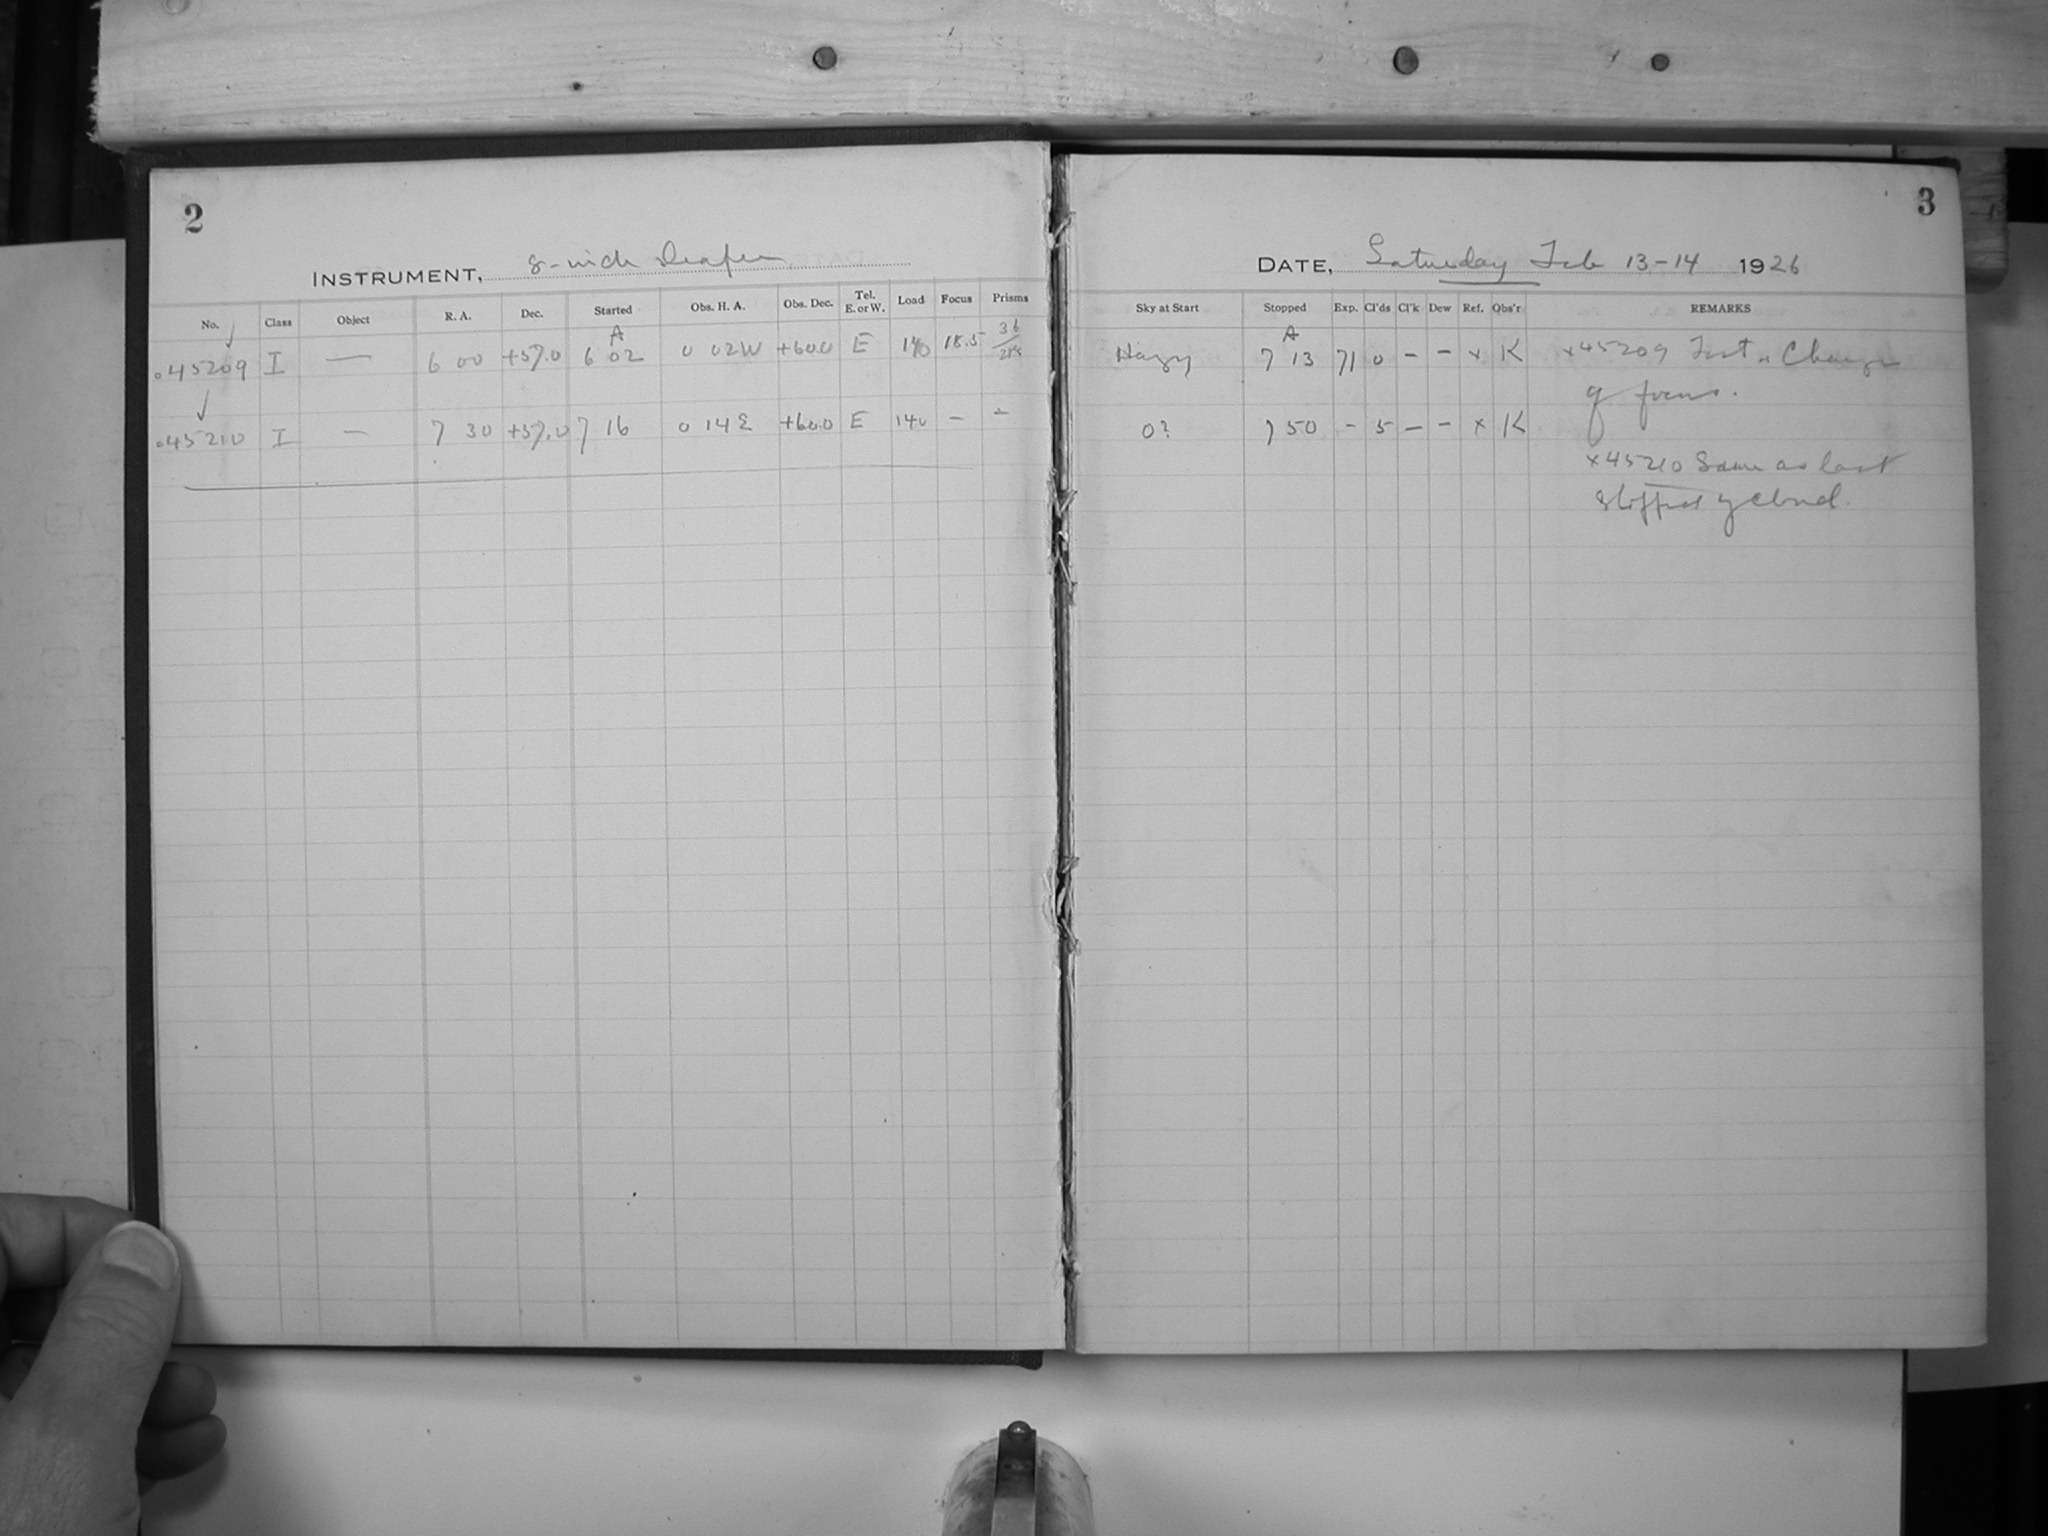 2
INSTRUMENT, 8-inch Draper
No. Class Object R. A. Dec. Started Obs. H. A. Obs. Dec. Tel. E. or W. Load Focus Prisms
A
45209 I — 6 00 +57.0 6 02 0 02W +60.0 E 140 18.5
45210 I — 7 30 +57.0 7 16 0 14E +60.0 E 140 – –
3
DATE, Saturday Feb 13-14 1926
Sky at Start Stopped Exp. Cl'ds Cl'k Dew Ref. Obs'r REMARKS
A
Hazy 7 13 71 0 – – x K x45209 Test Change
of focus.
0? 7 50 – 5 – – x K
x45210 Same as last
stopped by cloud.